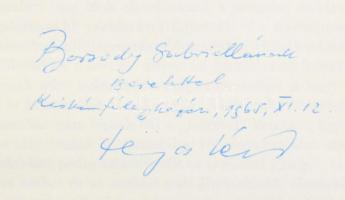 Borsody Gabriellának
szeretettel
Kiskunfélegyháza, 1965. XI. 12.
Féja Géza